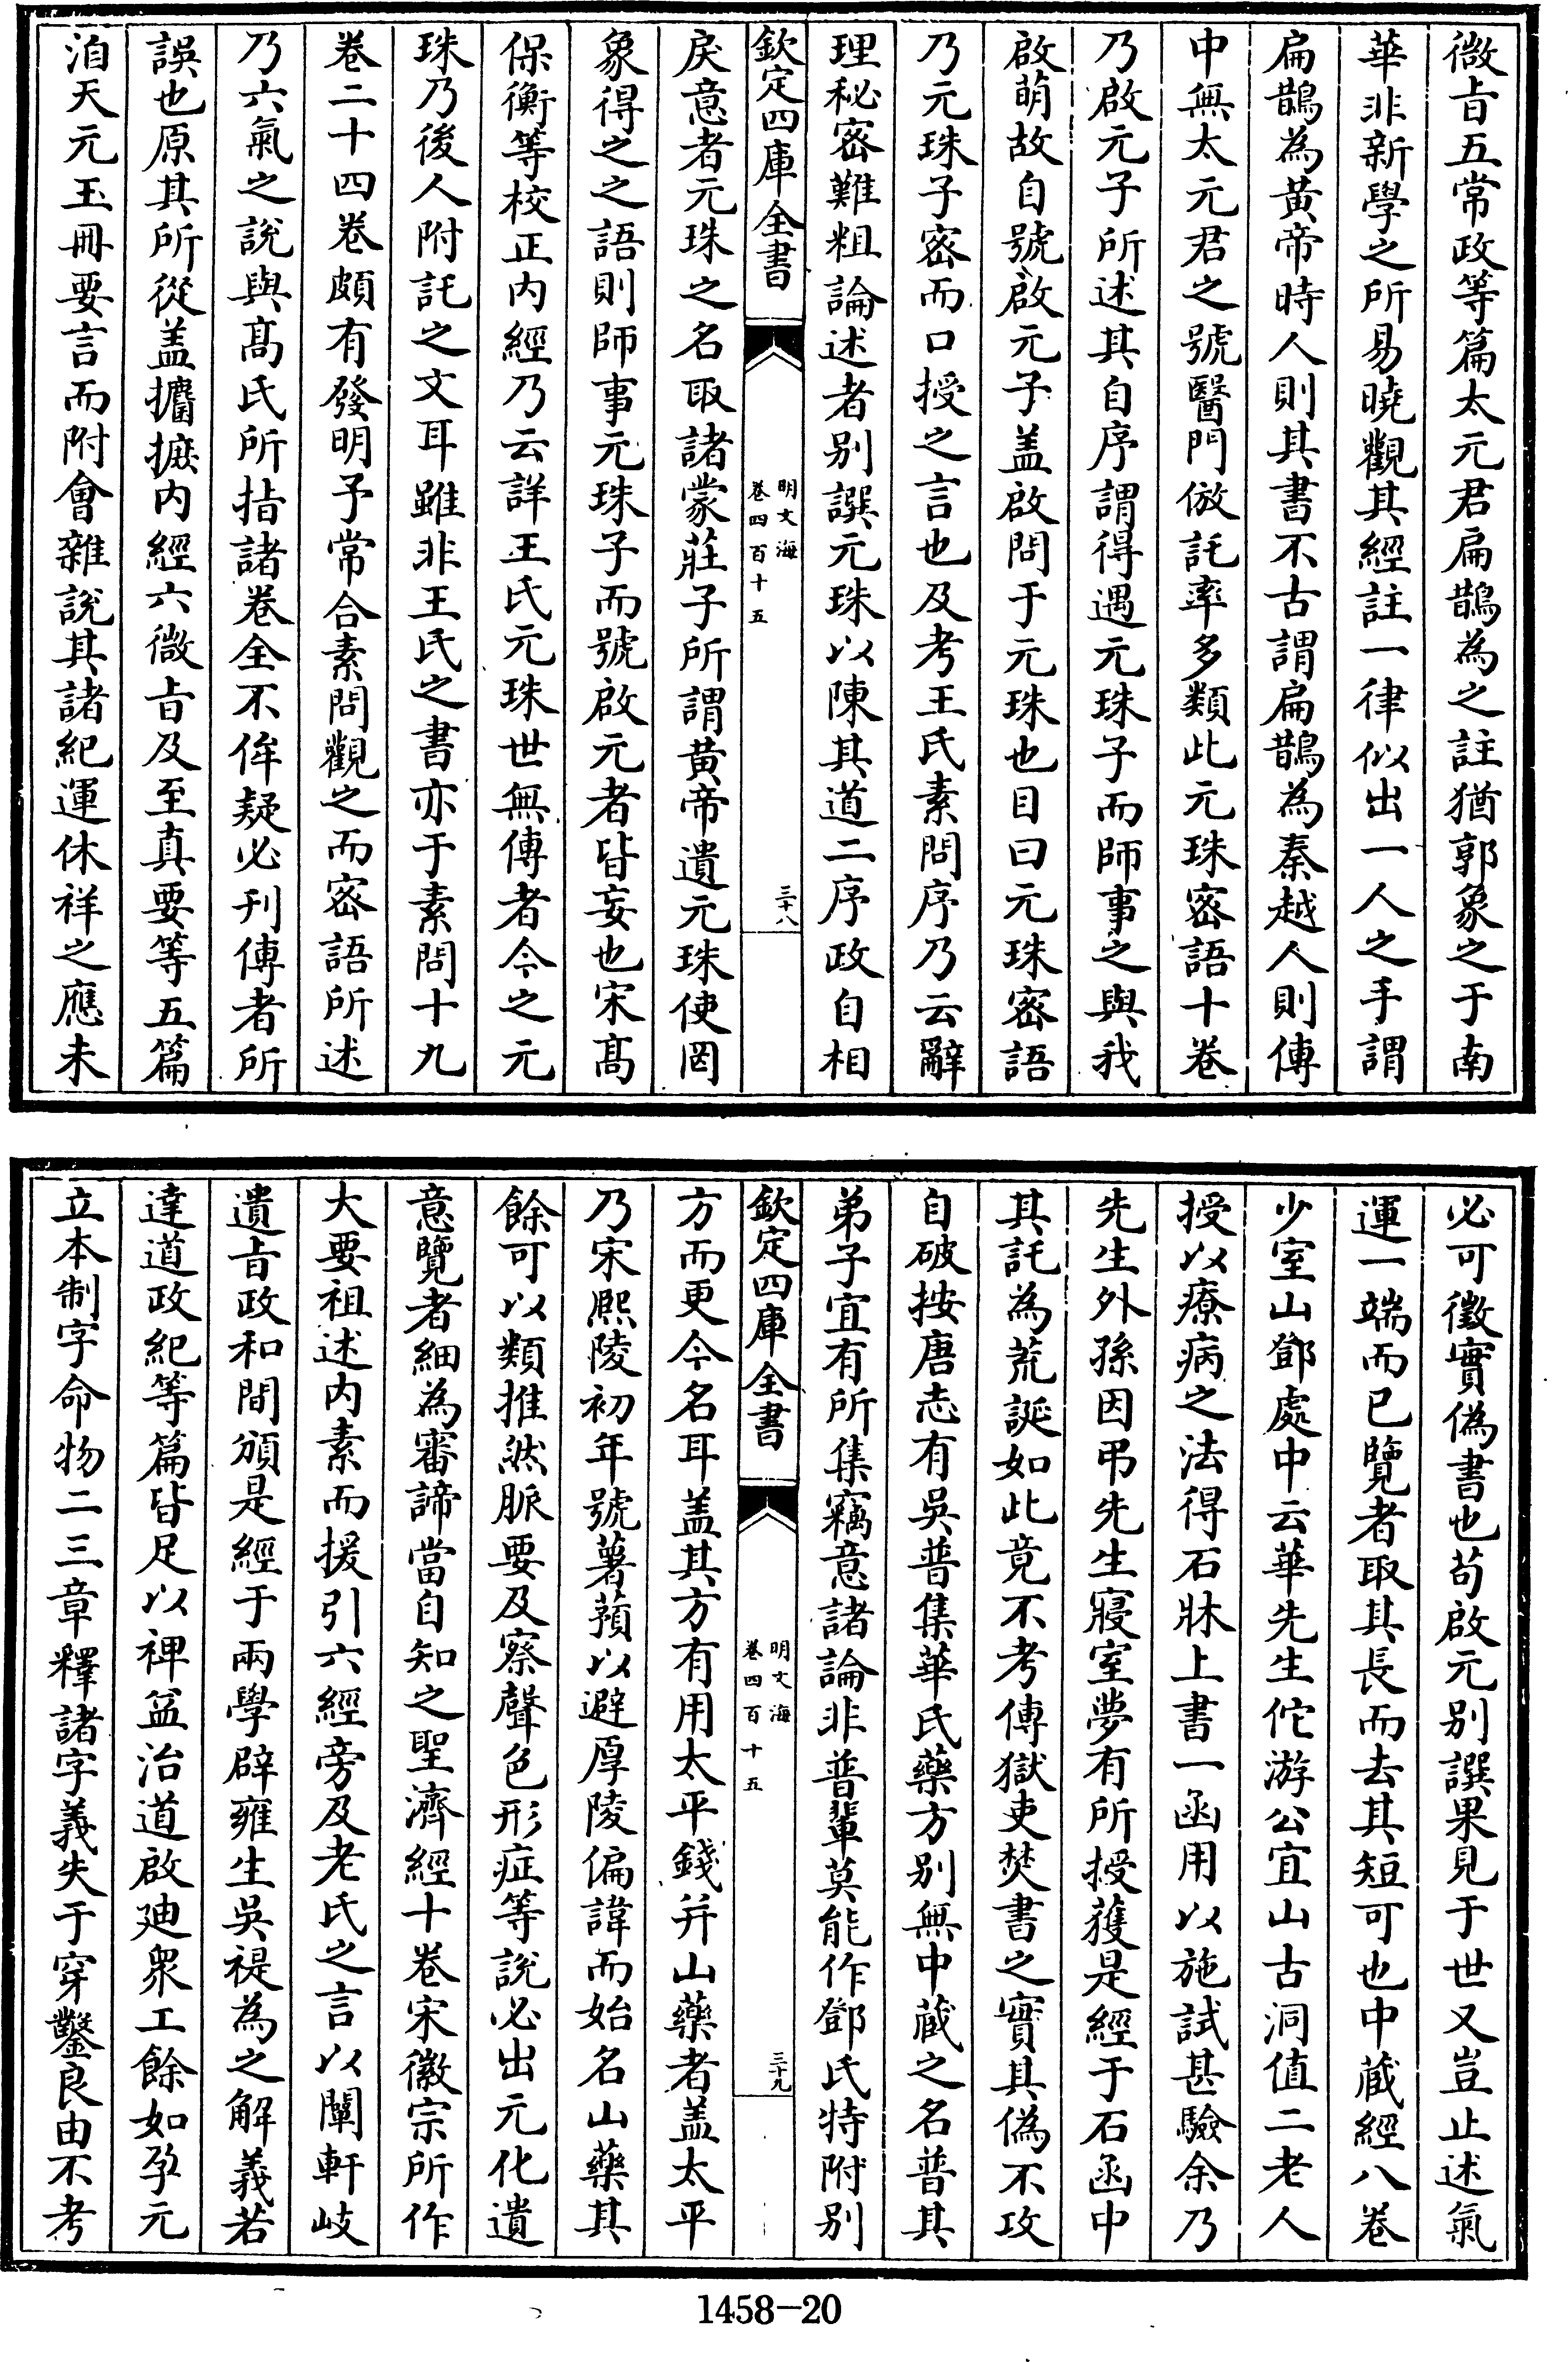 微㫖五常政等篇太元君扁鵲為之註猶郭象之于南
華非新學之所易曉觀其經註一律似出一人之手謂
扁鵲為黃帝時人則其書不古謂扁鵲為秦越人則傳
中無太元君之號醫門倣託率多類此元珠密語十卷
乃啟元子所述其自序謂得遇元珠子而師事之與我
啟萌故自號啟元子盖啟問于元珠也目曰元珠密語
乃元珠子密而口授之言也及考王氏素問序乃云辭
理秘密難粗論述者别譔元珠以陳其道二序政自相
欽定四庫全書
明文海
卷四百十五
三十八
戾意者元珠之名取諸蒙莊子所謂黄帝遺元珠使罔
象得之之語則師事元珠子而號啟元者皆妄也宋髙
保衡等校正内經乃云詳王氏元珠世無傳者今之元
珠乃後人附託之文耳雖非王氏之書亦于素問十九
卷二十四卷頗有發明予常合素問觀之而密語所述
乃六氣之說與髙氏所指諸卷全不侔疑必刋傳者所
誤也原其所從盖攟摭内經六微㫖及至真要等五篇
洎天元玉冊要言而附會雜說其諸紀運休祥之應未
必可徵實偽書也茍啟元别譔果見于世又豈止述氣
運一端而已覽者取其長而去其短可也中藏經八卷
少室山鄧處中云華先生佗游公宜山古洞值二老人
授以療病之法得石牀上書一函用以施試甚驗余乃
先生外孫因弔先生寢室夢有所授獲是經于石函中
其託為荒誕如此竟不考傳獄吏焚書之實其偽不攻
自破按唐志有吳普集華氏藥方别無中藏之名普其
弟子宜有所集竊意諸論非普輩莫能作鄧氏特附别
欽定四庫全書
明文海
卷四百十五
三十九
方而更今名耳盖其方有用太平錢并山藥者盖太平
乃宋熈陵初年號薯蕷以避厚陵偏諱而始名山藥其
餘可以類推然脈要及察聲色形症等說必出元化遺
意覽者細為審諦當自知之聖濟經十卷宋徽宗所作
大要祖述内素而援引六經旁及老氏之言以闡軒岐
遺㫖政和間頒是經于兩學辟雍生吳禔為之解義若
達道政紀等篇皆足以裨益治道啟廸衆工餘如孕元
立本制字命物二三章釋諸字義失于穿鑿良由不考
1458-20